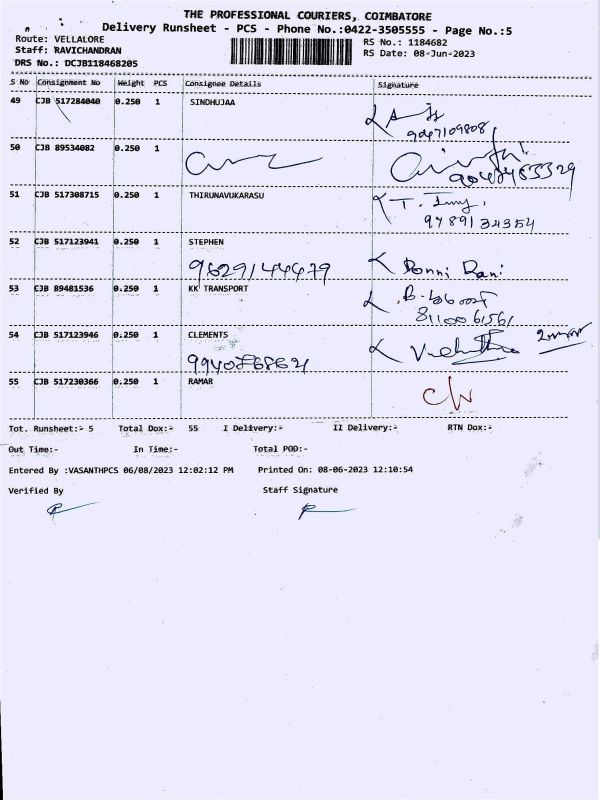 THE PROFESSIONAL COURIERS, COIMBATORE
Delivery Runsheet - PCS - Phone No.:0422-3505555 - Page No.:5
Route: VELLALORE
RS No.: 1184682
Staff: RAVICHANDRAN
RS Date: 08-Jun-2023
DRS No.: DCJB118468205
S No Consignment No Weight PCS Consignee Details Signature
49 CJB 517284040 0.250 1 SINDHUJAA
9047109808
50 CJB 89534082 0.250 1
51 CJB 517308715 0.250 1 THIRUNAVUKARASU
T.
9789134354
52 CJB 517123941 0.250 1 STEPHEN
9629144479 Ponni Rani
53 CJB 89481536 0.250 1 KK TRANSPORT
8110061561
54 CJB 517123946 0.250 1 CLEMENTS
9940868621
55 CJB 517230366 0.250 1 RAMAR
C/N
Tot. Runsheet:- 5 Total Dox:- 55 I Delivery:- II Delivery:- RTN Dox:-
Out Time:- In Time:- Total POD:-
Entered By :VASANTHPCS 06/08/2023 12:02:12 PM Printed On: 08-06-2023 12:10:54
Verified By Staff Signature